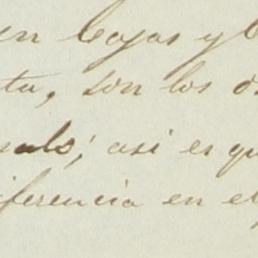 en Cajas y C
ta, son los d
malo; asi es qu
iferencia en el